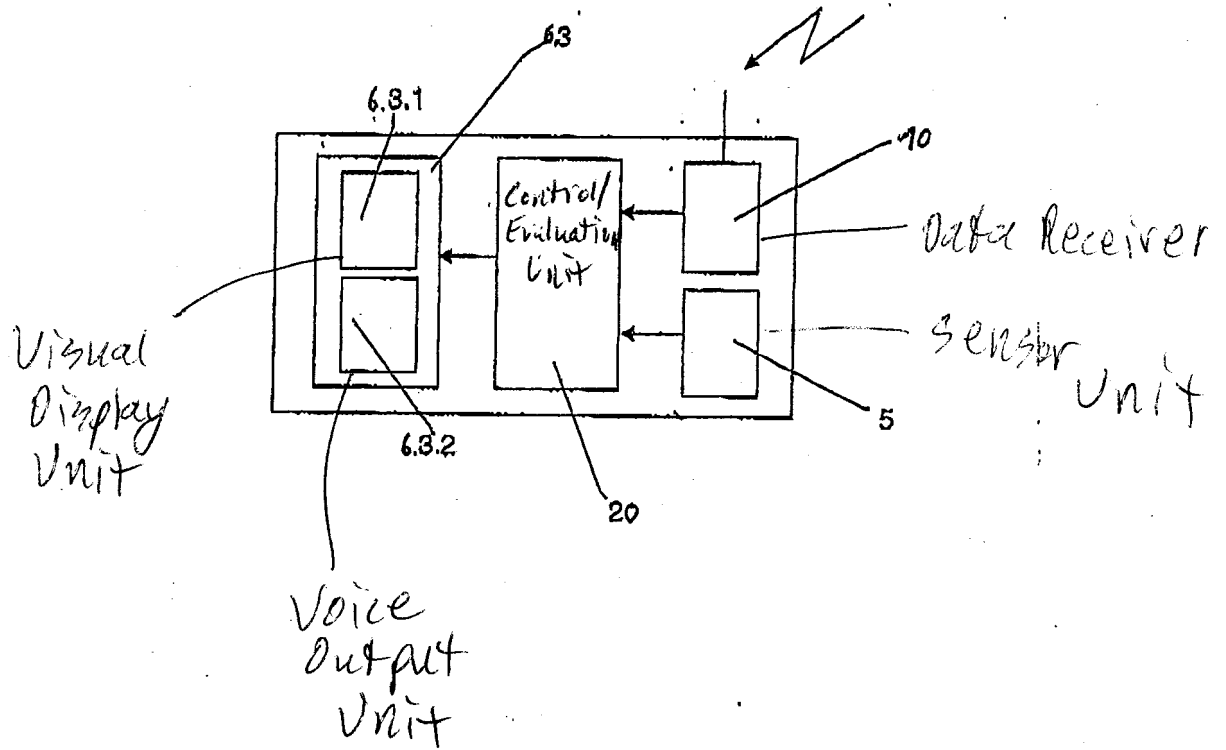 63
6.3.1
10
Control/
Evaluation
Unit
Data Receiver
Sensor
Unit
Visual
Display
Unit
5
6.3.2
20
Voice
Output
Unit